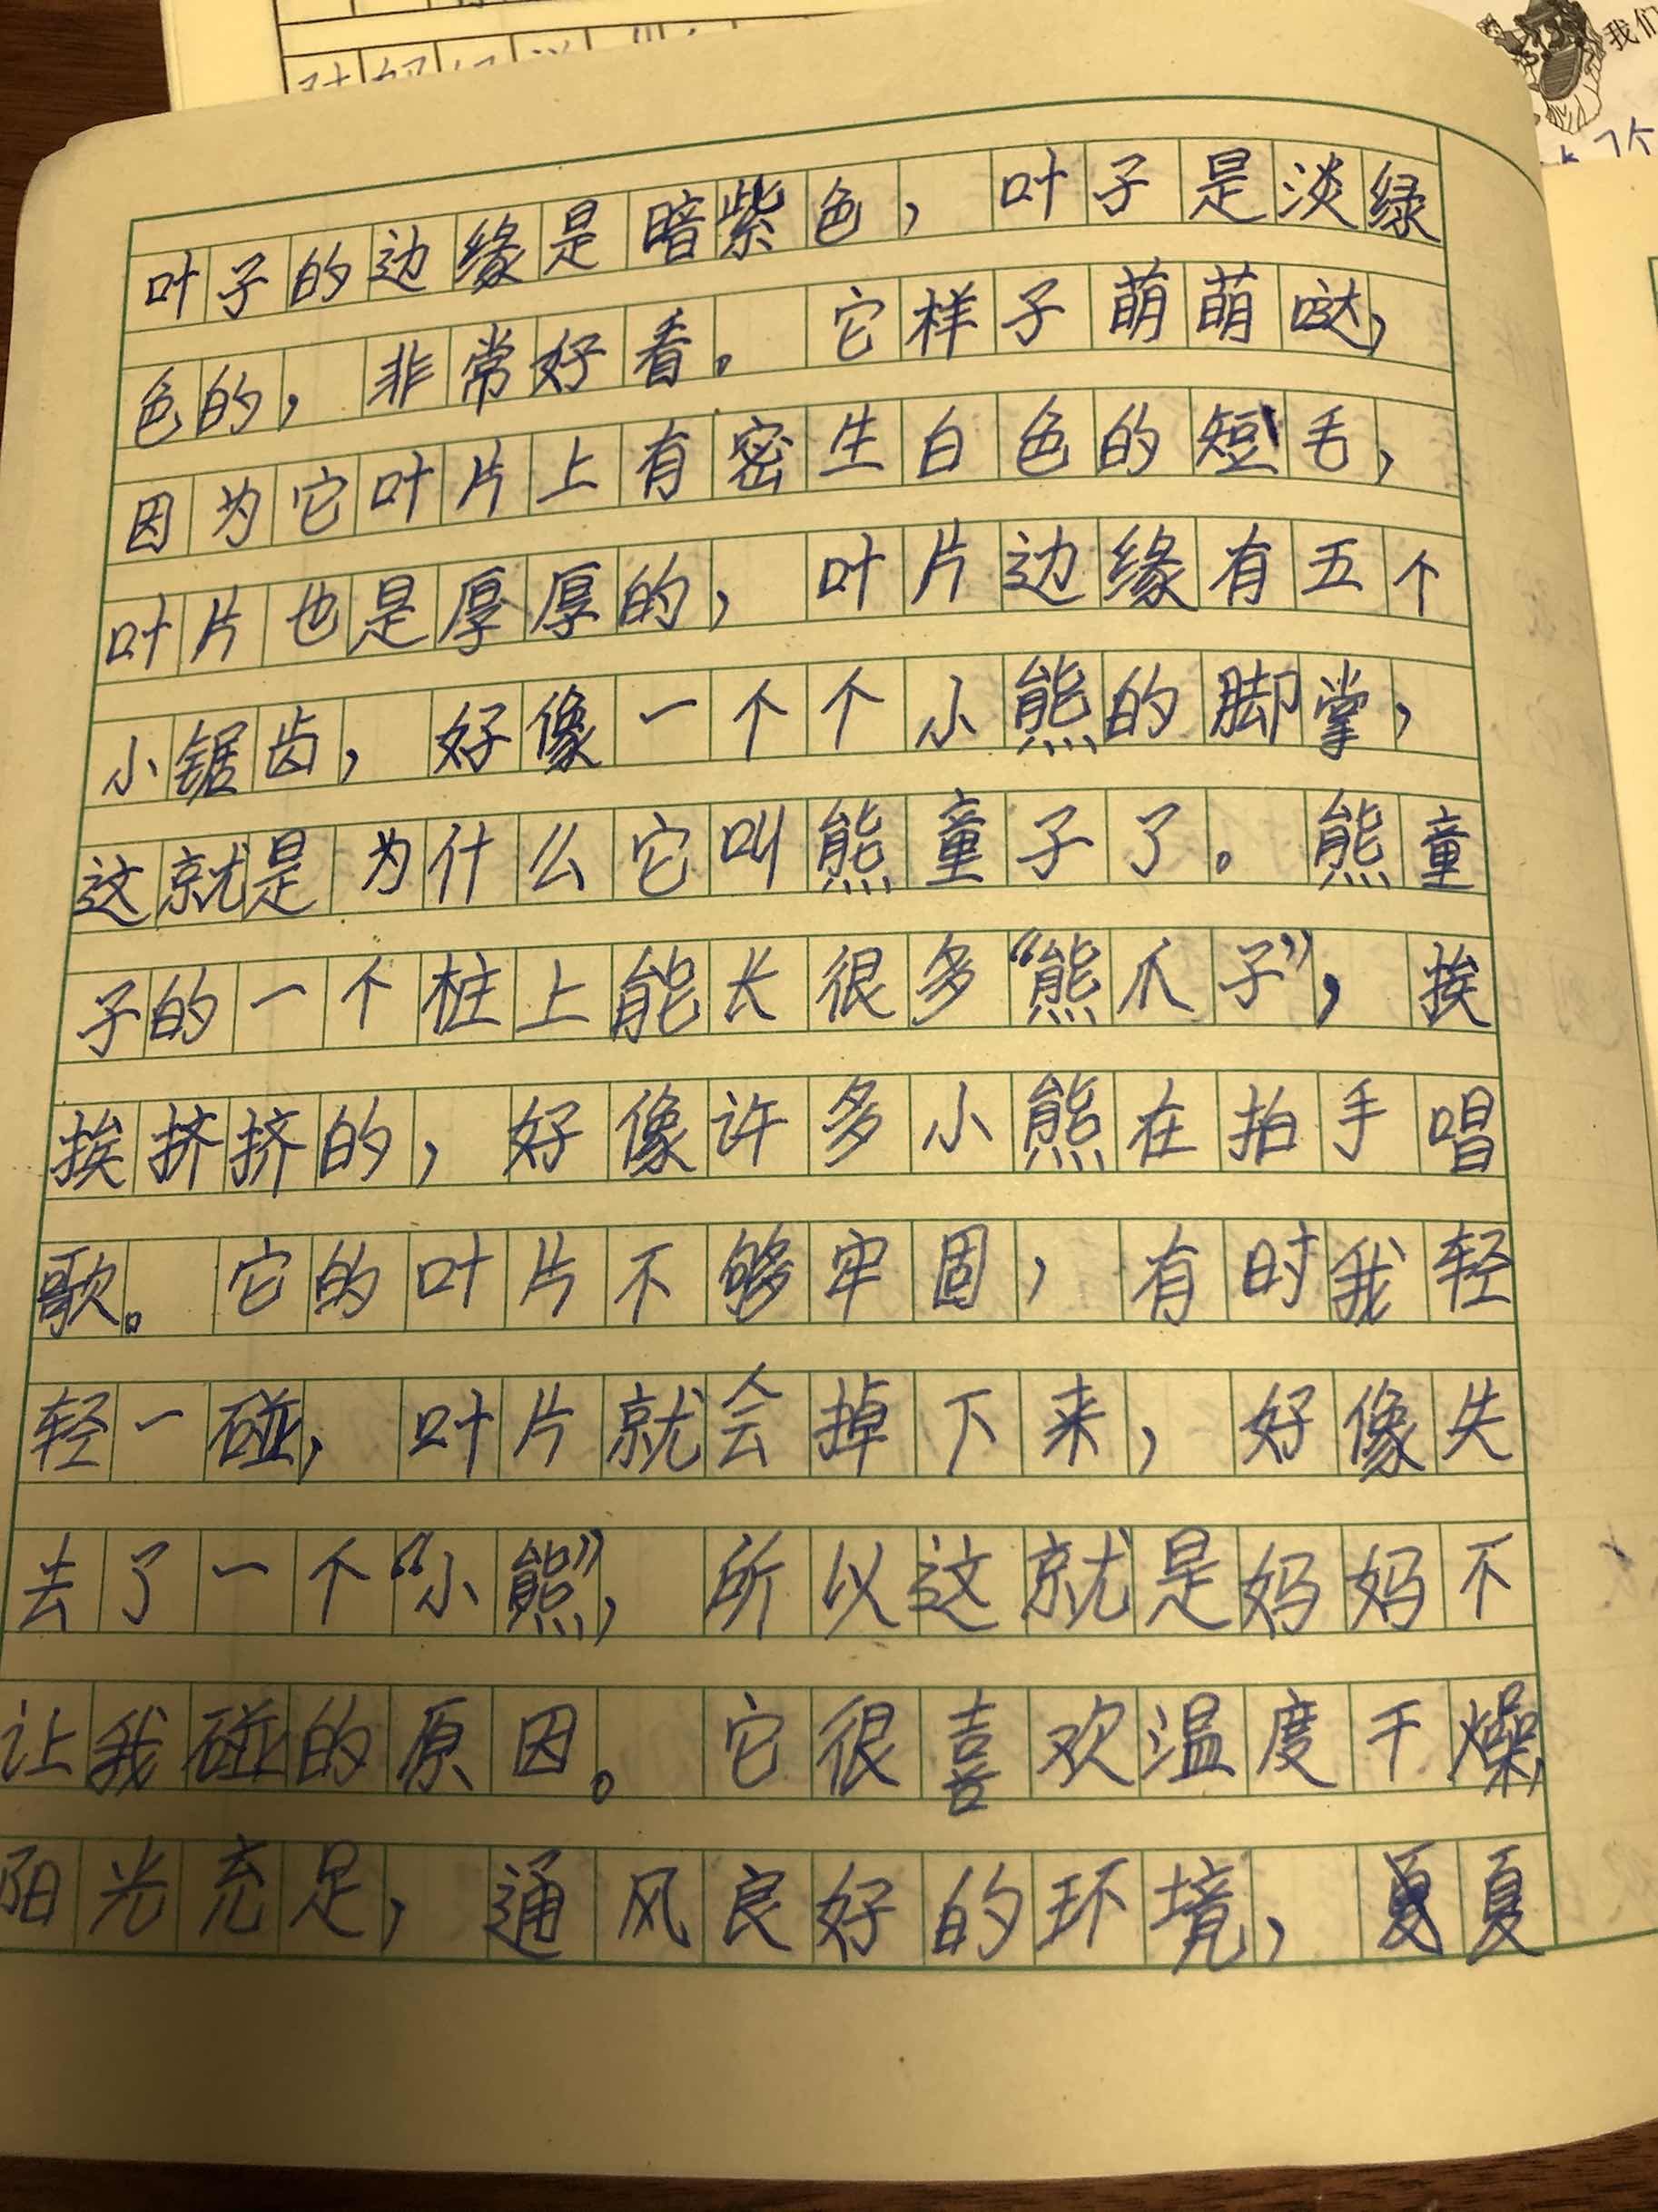 我们
个
叶子的边缘是暗紫色，叶子是淡绿
色的，非常好看。它样子萌萌哒，
因为它叶片上有密生白色的短毛，
叶片也是厚厚的，叶片边缘有五个
小锯齿，好像一个个小熊的脚掌，
这就是为什么它叫熊童子了。熊童
子的一个桩上能长很多“熊爪子”，挨
挨挤挤的，好像许多小熊在拍手唱
歌。它的叶片不够牢固，有时我轻
轻一碰，叶片就会掉下来，好像失
去了一个“小熊”，所以这就是妈妈不
让我碰的原因。它很喜欢温度干燥，
阳光充足，通风良好的环境，夏夏